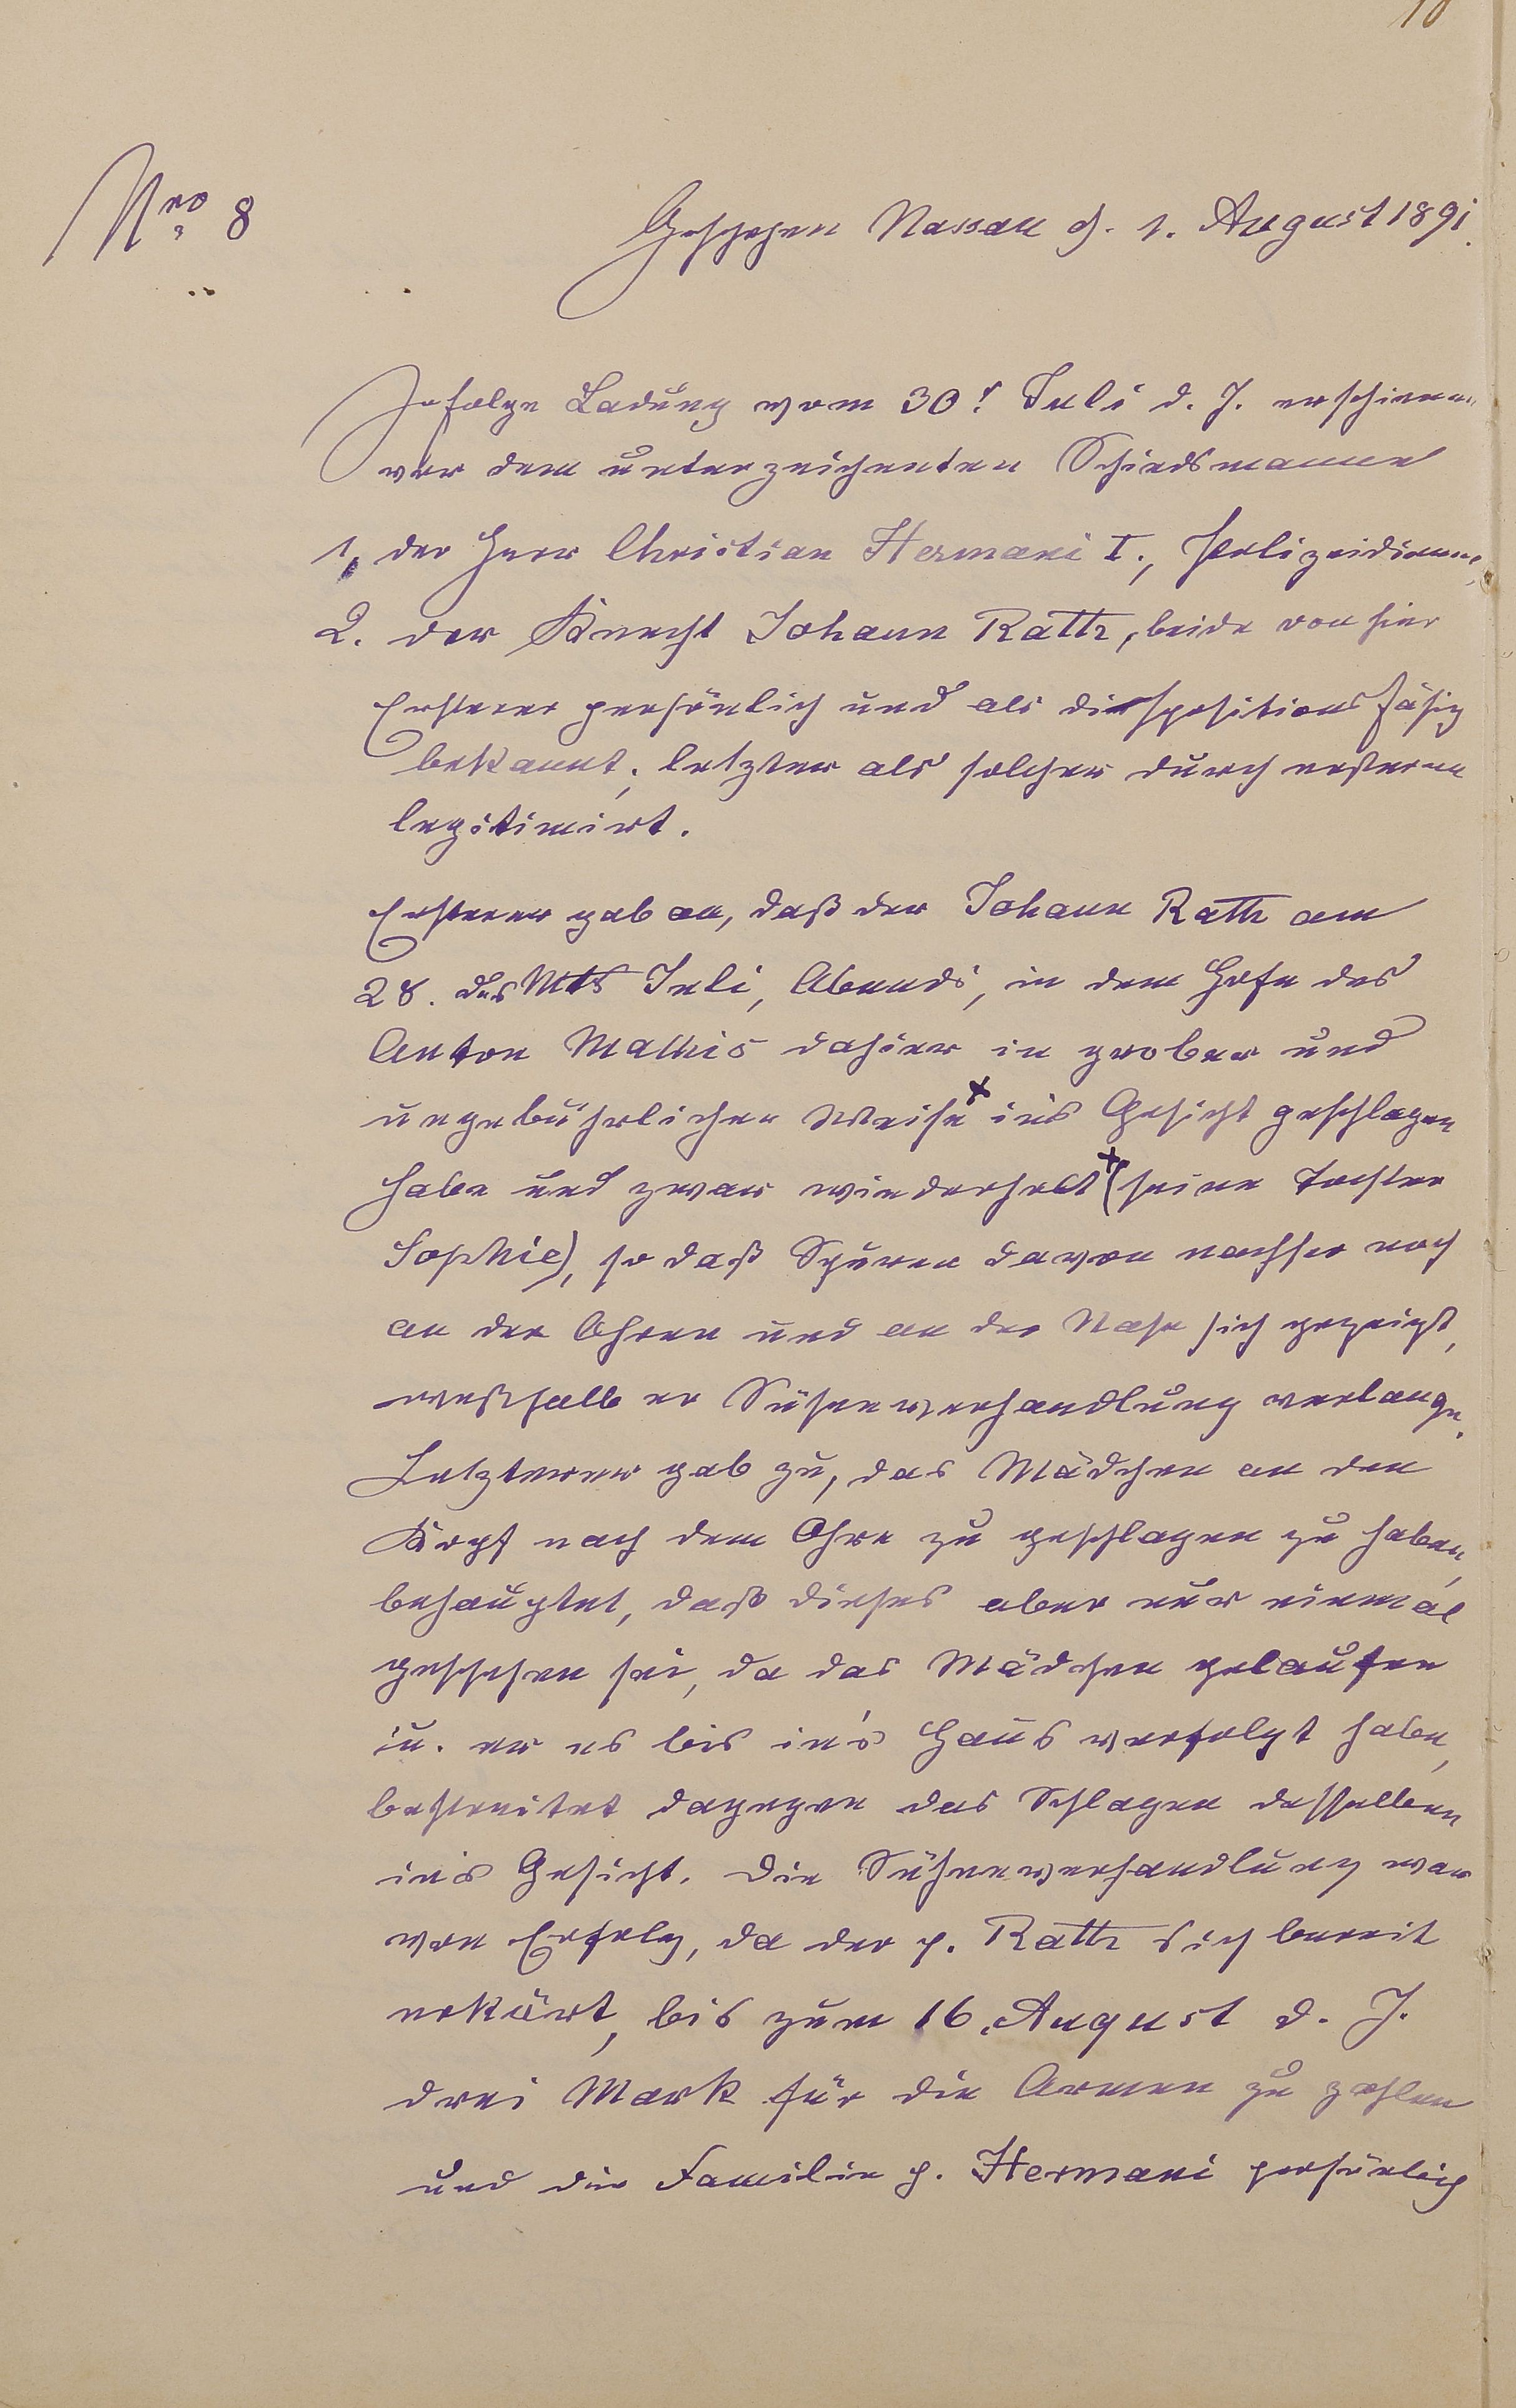 10
Nro 8
Geschehen Nassau d. 1. August 1891.
Infolge Ladung vom 30t Juli d. J. erschienen
vor dem unterzeichneten Schiedsmanne
1, der Herr Christian Hermani I., Polizeidiener,
2. der Knecht Johann Rath, beide von hier
Ersterer persönlich und als dispositionsfähig
bekannt, letzter als solcher durch ersteren
legitimirt.
Ersterer gab an, daß der Johann Rath am
28. des Mts Juli, Abends, in dem Hofe des
Anton Mathis dahier in grober und
ungebührlicher Weise x in's Gesicht geschlagen
habe und zwar wiederholt x (seine Tochter
Sophie), so daß Spuren davon nachher noch
an den Ohren und an der Nase sich gezeigt,
weßhalb er Sühneverhandlung verlange.
Letzterer gab zu, das Mädchen an den
Kopf nach dem Ohre zu geschlagen zu haben,
behauptet, daß dieses aber nur einmal
geschehen sei, da das Mädchen gelaufen
u. er es bis in's Haus verfolgt habe,
bestreitet dagegen das Schlagen desselben
in's Gesicht. Die Sühneverhandlung war
von Erfolg, da der p. Rath sich bereit
erkärt, bis zum 16. August d. J.
drei Mark für die Armen zu zahlen
und die Familie p. Hermani persönlich